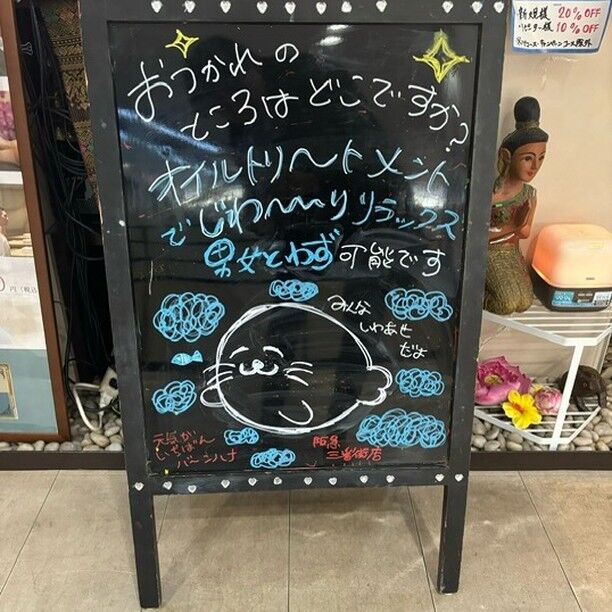 おつかれの
ところは どこですか?
オイルトリ〜トメント
でじわ〜〜りリラックス
男女とわず可能です
みんな
しあわせ
だよ
元気がん
いちばん
バーンハナ
阪急
三番街店
新規様 20%OFF
10%OFF